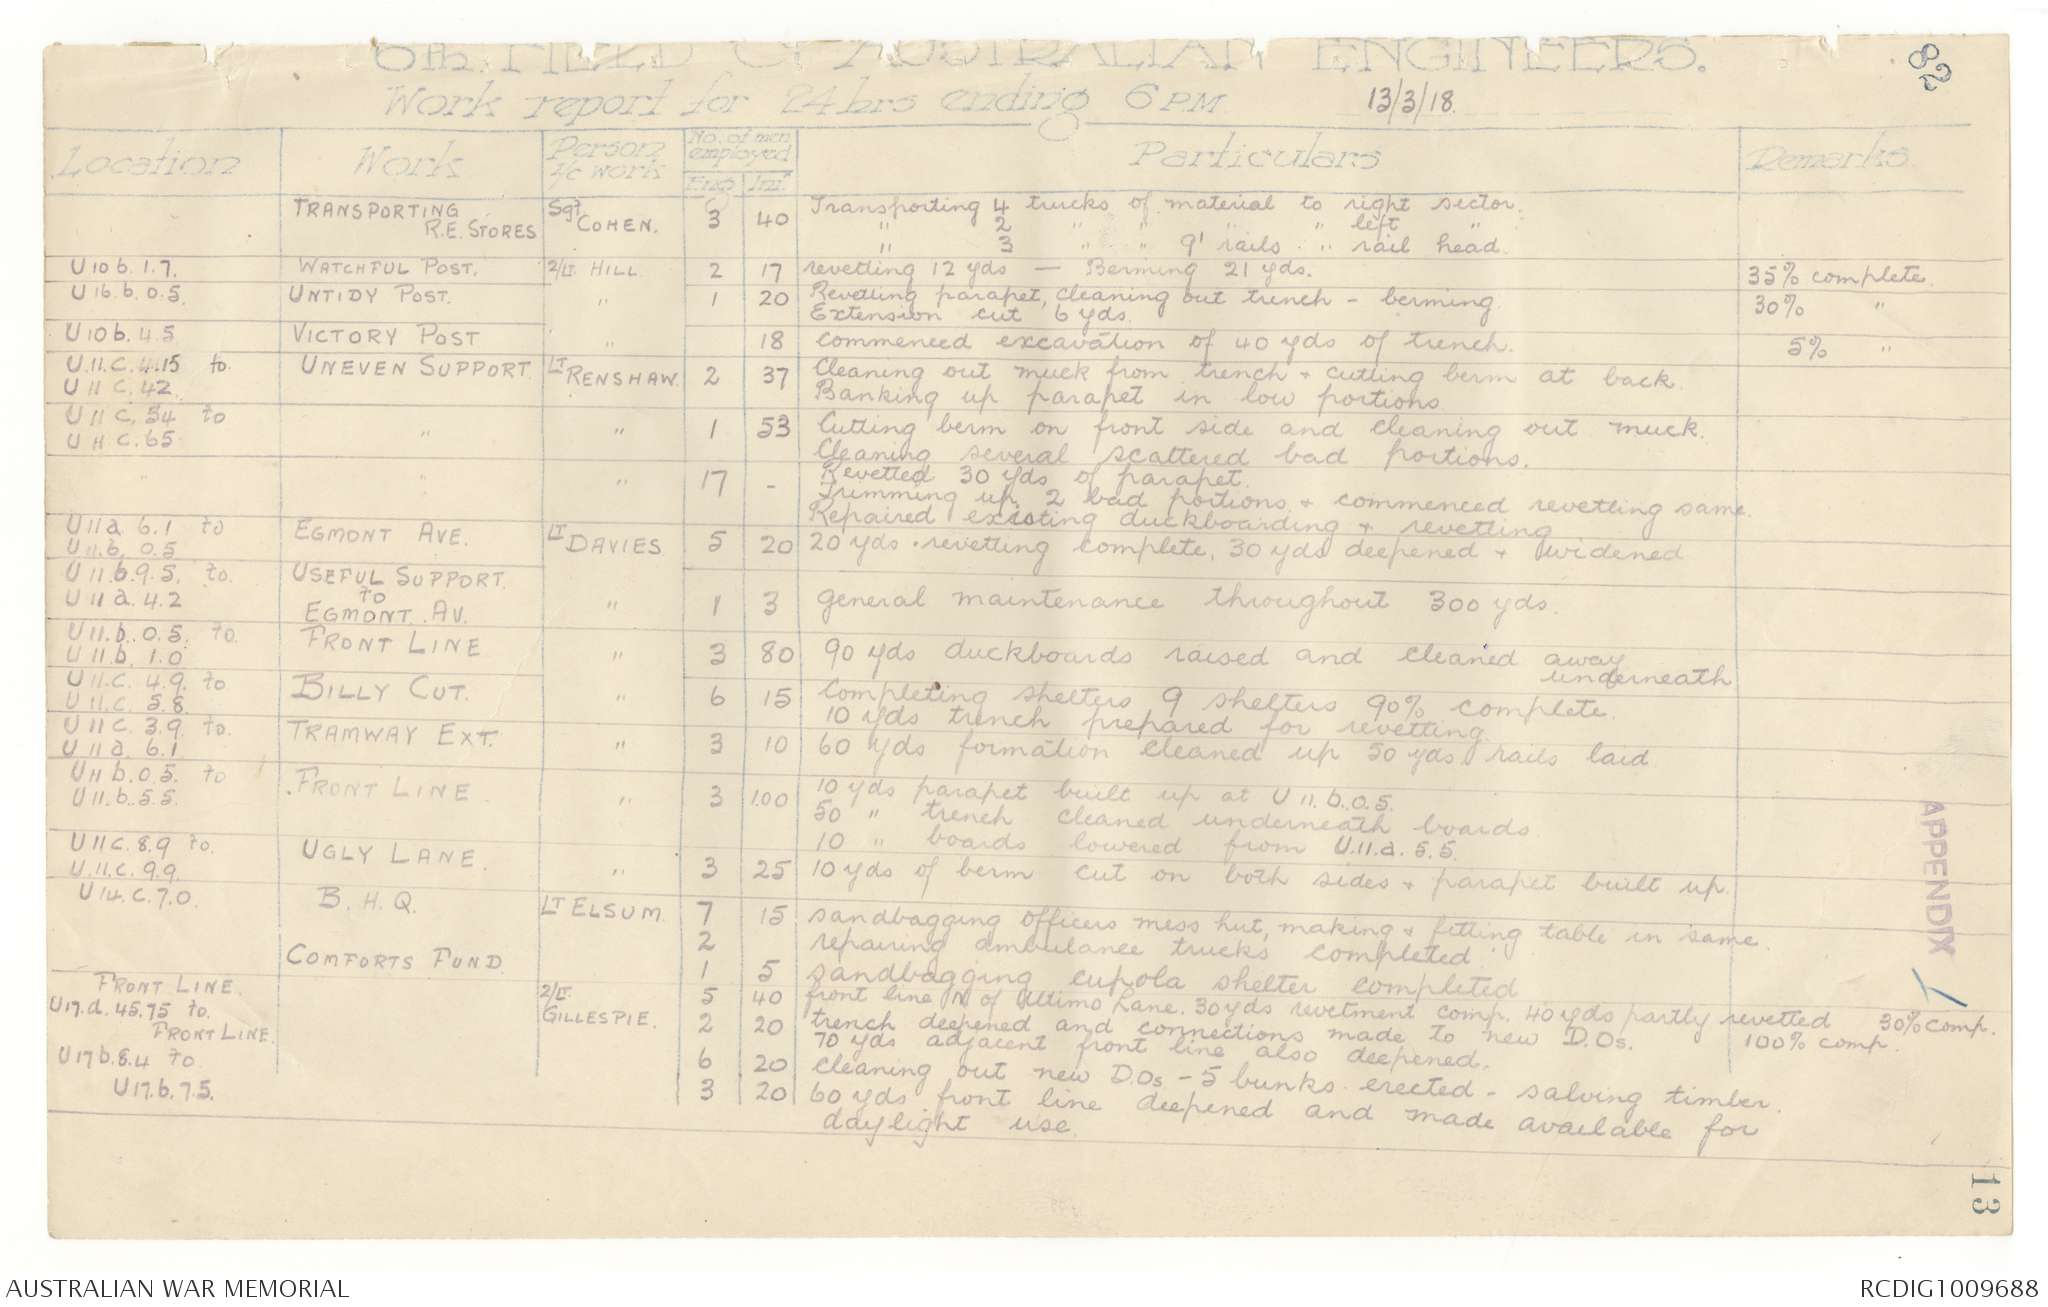 6th FIELD Co AUSTRALIAN ENGINEERS.
82
Work report for 24 hrs ending 6 PM 13/3/18.
Location Work Person i/c work No. of men employed Eng Inf. Particulars Remarks
TRANSPORTING R.E. STORES Sgt COHEN. 3 40 Transporting 4 trucks of material to right sector.
" 2 " " " " left "
" 3 " " 9' rails " rail head.
U10 b. 1.7. WATCHFUL POST. 2/LT HILL 2 17 revetting 12 yds — Berming 21 yds. 35% complete.
U16. b. 0.5. UNTIDY POST. " 1 20 Revetting parapet, cleaning out trench - berming. 30% "
Extension cut 6 yds.
U10b. 4.5 VICTORY POST " 18 commenced excavation of 40 yds of trench. 5% "
U.11.C. 4.15 to UNEVEN SUPPORT LT RENSHAW. 2 37 Cleaning out muck from trench + cutting berm at back.
U 11 C. 42. Banking up parapet in low portions
U 11 C. 54 to " " 1 53 Cutting berm on front side and cleaning out muck.
U 11 C. 65 Cleaning several scattered bad portions.
" " " 17 - Revetted 30 yds of parapet.
Trimming up 2 bad portions + commenced revetting same.
Repaired existing duckboarding + revetting
U11a 6.1 to EGMONT AVE. LT DAVIES 5 20 20 yds. revetting complete, 30 yds deepened + widened
U11.b. 0.5
U 11.b. 9.5. to. USEFUL SUPPORT.
to
U 11 a. 4.2 EGMONT. AV. " 1 3 general maintenance throughout 300 yds.
U 11.b. 0.5. to FRONT LINE " 3 80 90 yds duckboards raised and cleaned away underneath
U 11 b. 1.0
U 11.C. 4.9. to BILLY CUT. " 6 15 Completing shelters 9 shelters 90% complete.
U 11.C. 5.8. 10 yds trench prepared for revetting.
U 11 C. 3.9. to. TRAMWAY EXT. " 3 10 60 yds formation cleaned up 50 yds rails laid
U 11 a. 6.1
U 11 b. 0.5. to FRONT LINE. " 3 100 10 yds parapet built up at U 11. b. 0.5.
U 11. b. 5.5. 50 " trench cleaned underneath boards
10 " boards lowered from U.11.a. 5.5.
U 11 C. 8.9 to. UGLY LANE. " 3 25 10 yds of berm cut on both sides + parapet built up.
U. 11. C. 9.9.
U14. C. 7.0. B. H. Q. LT ELSUM. 7 15 sandbagging officers mess hut, making + fitting table in same.
2 repairing ambulance trucks completed
COMFORTS FUND 1 5 sandbagging cupola shelter completed
FRONT LINE. 2/LT. GILLESPIE. 5 40 front line N of Ultimo Lane. 30 yds revetment comp. 40 yds partly revetted 30% comp.
U17. d. 45.75 to. 2 20 trench deepened and connections made to new D.Os. 100% comp.
FRONT LINE. 70 yds adjacent front line also deepened.
U 17 b. 8.4 to 6 20 cleaning out new D.Os - 5 bunks erected - salving timber.
U 17. b. 7.5. 3 20 60 yds front line deepened and made available for
daylight use.
APPENDIX
13
AUSTRALIAN WAR MEMORIAL RCDIG1009688